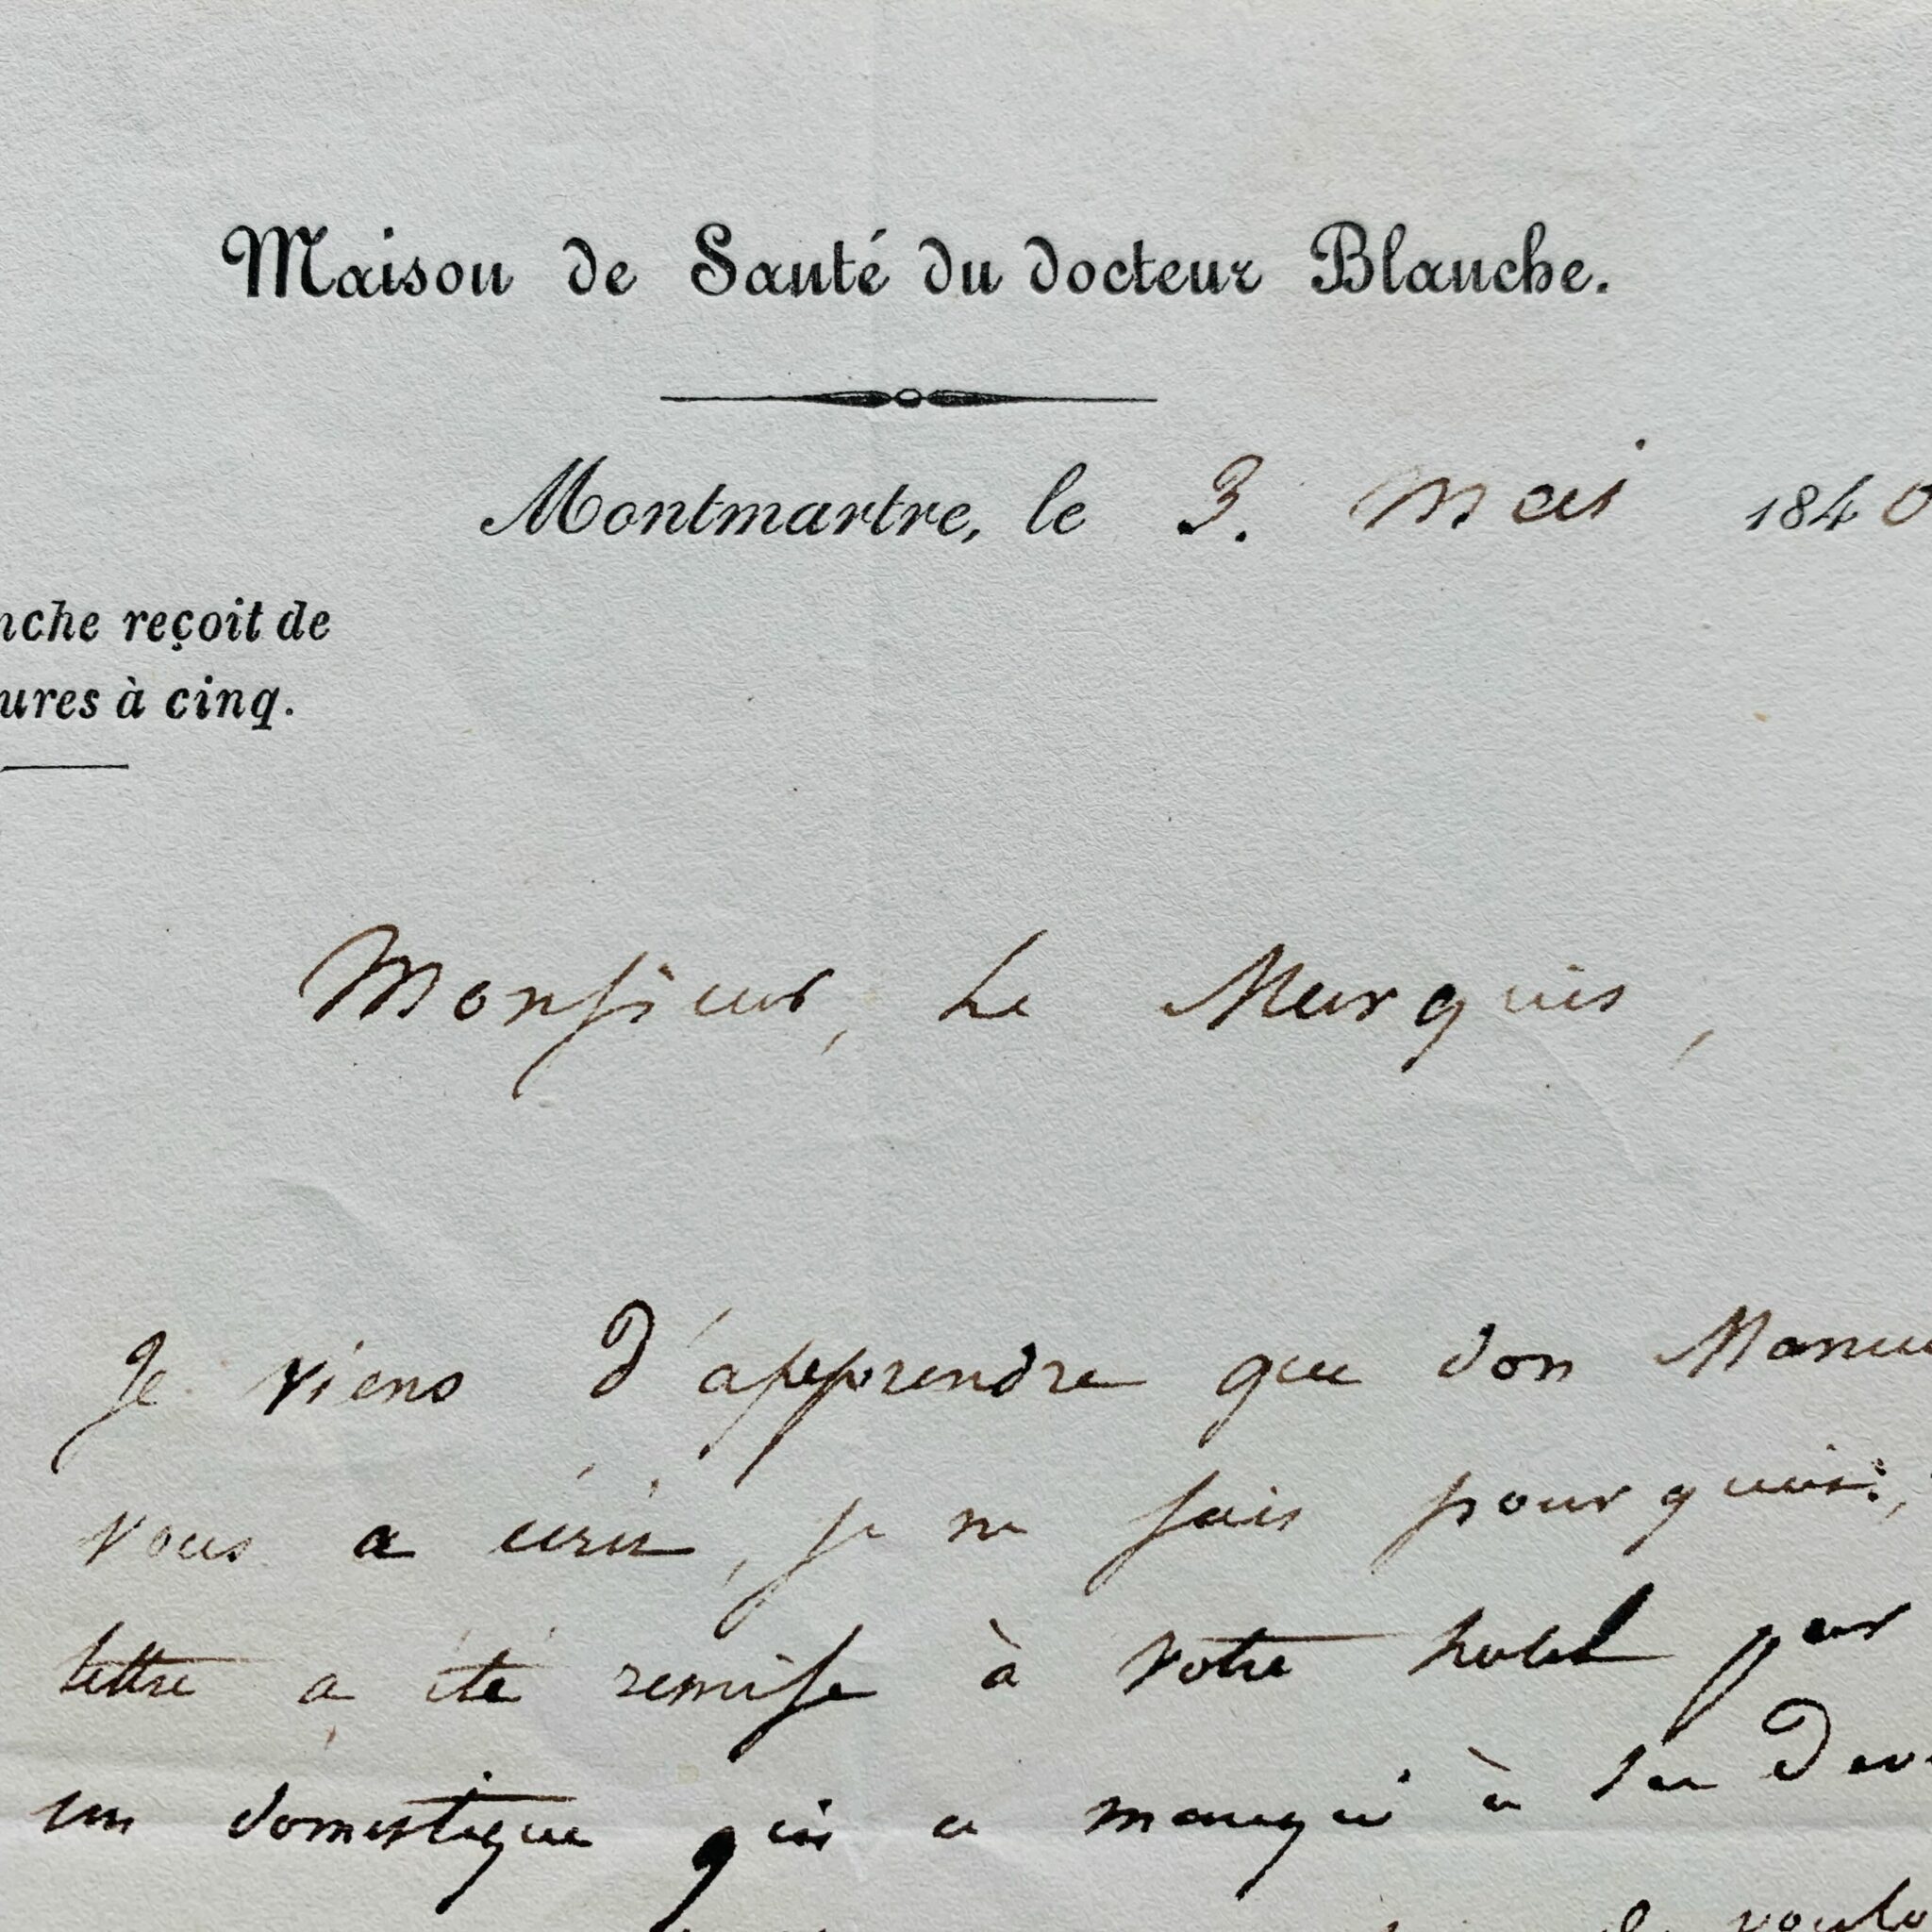 Maison de Santé du docteur Blanche.
Montmartre, le 3. Mai 1840
nche reçoit de
ures à cinq.
Monsieur, Le Marquis,
Je viens d'apprendre que don Manue
vous a écrit, je ne sais pourquoi,
lettre a été remise à votre hotel par
un domestique qui a manqué à